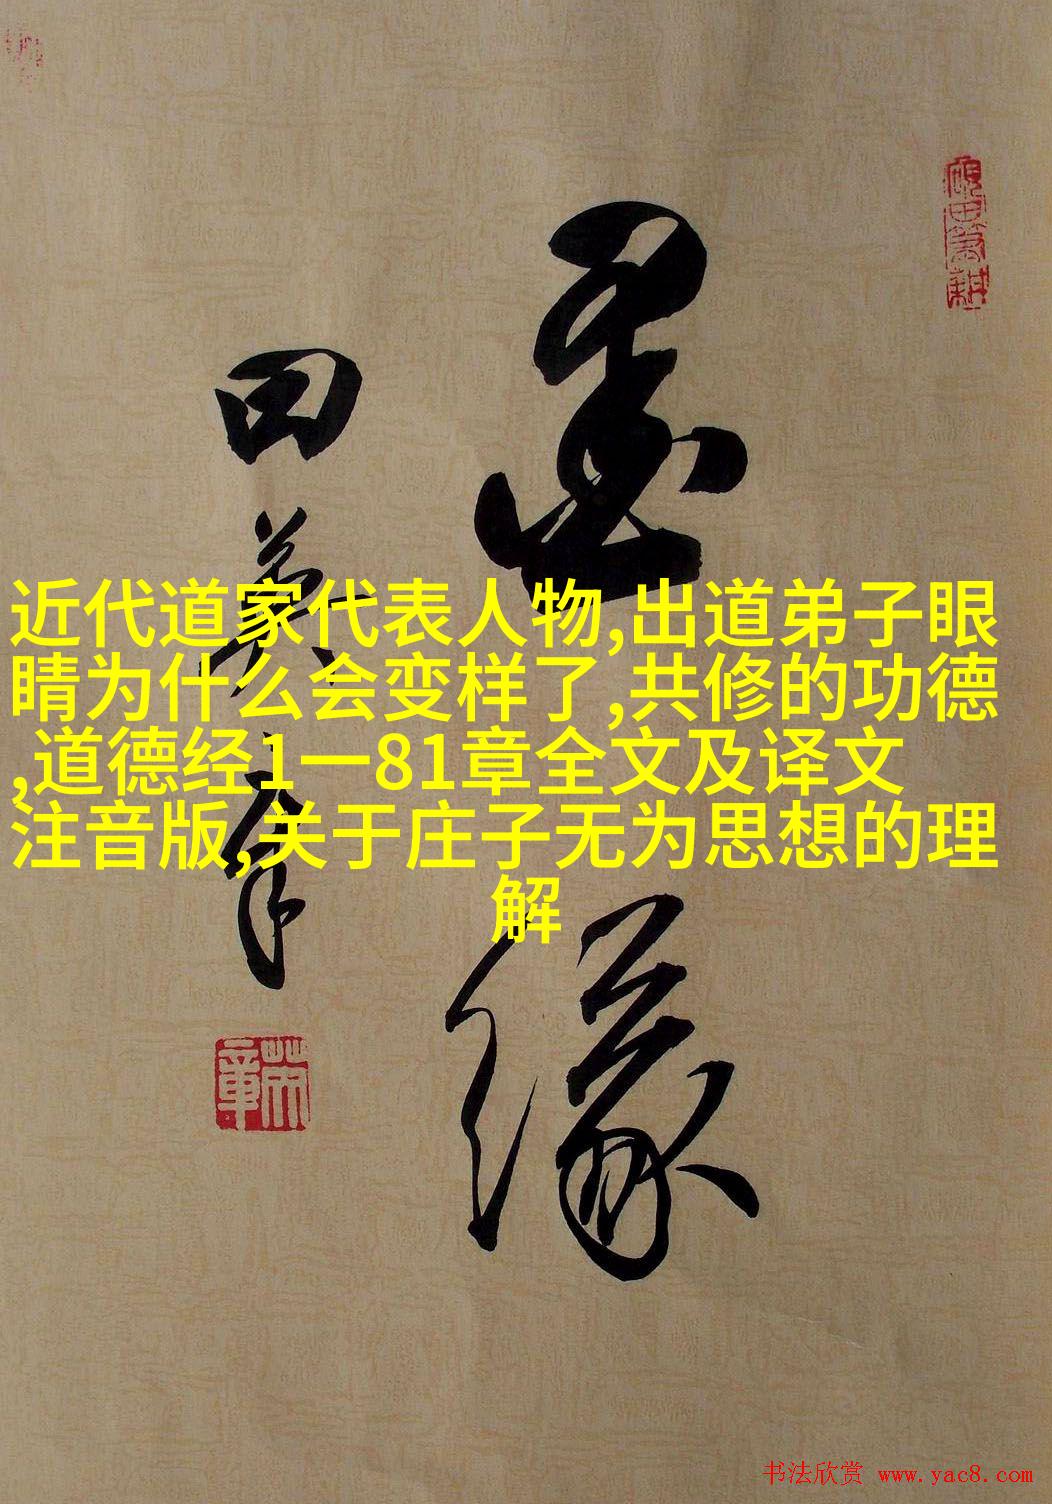 墨缘
田英章
近代道家代表人物,出道弟子眼
睛为什么会变样了,共修的功德
,道德经1一81章全文及译文
注音版,关于庄子无为思想的理
解
书法欣赏 www.yac8.com